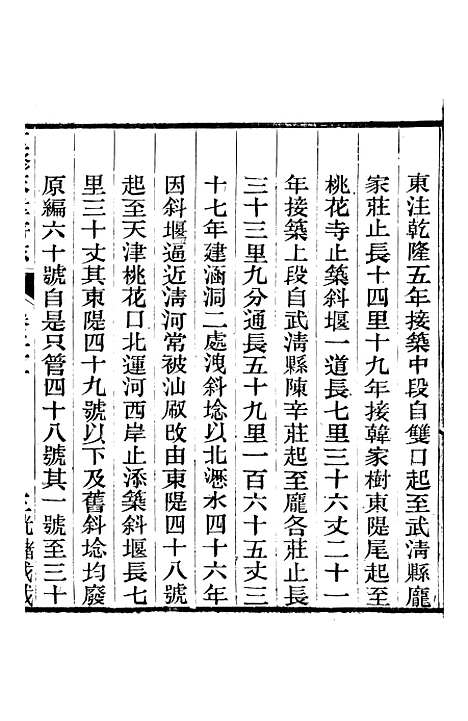 東洼乾隆五年接築中段自雙口起至武淸縣龐
家莊止長十四里十九年接韓家樹東隄尾起至
桃花寺止築斜堰一道長七里三十六丈二十一
年接築上段自武淸縣陳辛莊起至龐各莊止長
三十三里九分通長五十九里一百六十五丈三
十七年建涵洞二處洩斜埝以北瀝水四十六年
因斜堰逼近淸河常被汕㕞改由東隄四十八號
起至天津桃花口北運河西岸止添築斜堰長七
里三十丈其東隄四十九號以下及舊斜埝均廢
原編六十號自是只管四十八號其一號至三十
光緖戊戌